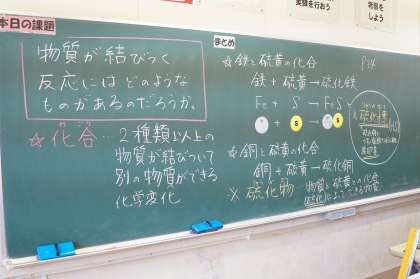 本日の課題
物質が結びつく
反応にはどのような
ものがあるのだろうか。
☆化合
2種類以上の
物質が結びついて
別の物質ができる
化学変化
まとめ
☆鉄と硫黄の化合
鉄 + 硫黄 → 硫化鉄
Fe + S → FeS
S
S
☆銅と硫黄の化合
銅 + 硫黄 → 硫化銅
※硫化物
物質と硫黄との化合
によってできる物質
P34
実験を行おう
しよう